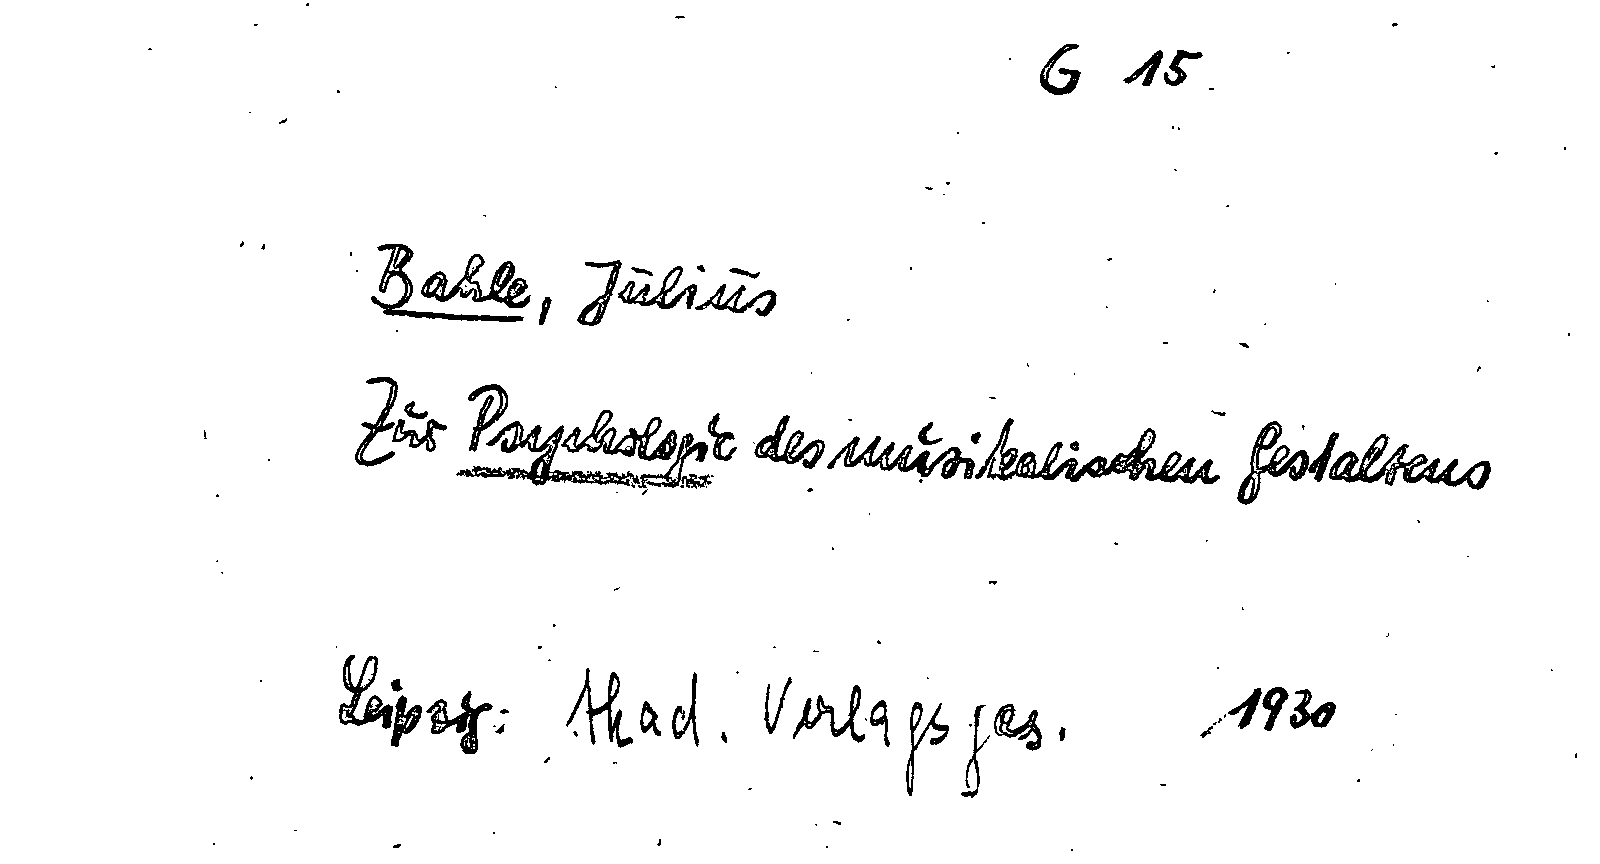 G 15
Bahle, Julius
Zur Psychologie des musikalischen Gestaltens
Leipzig: Akad. Verlagsges. 1930